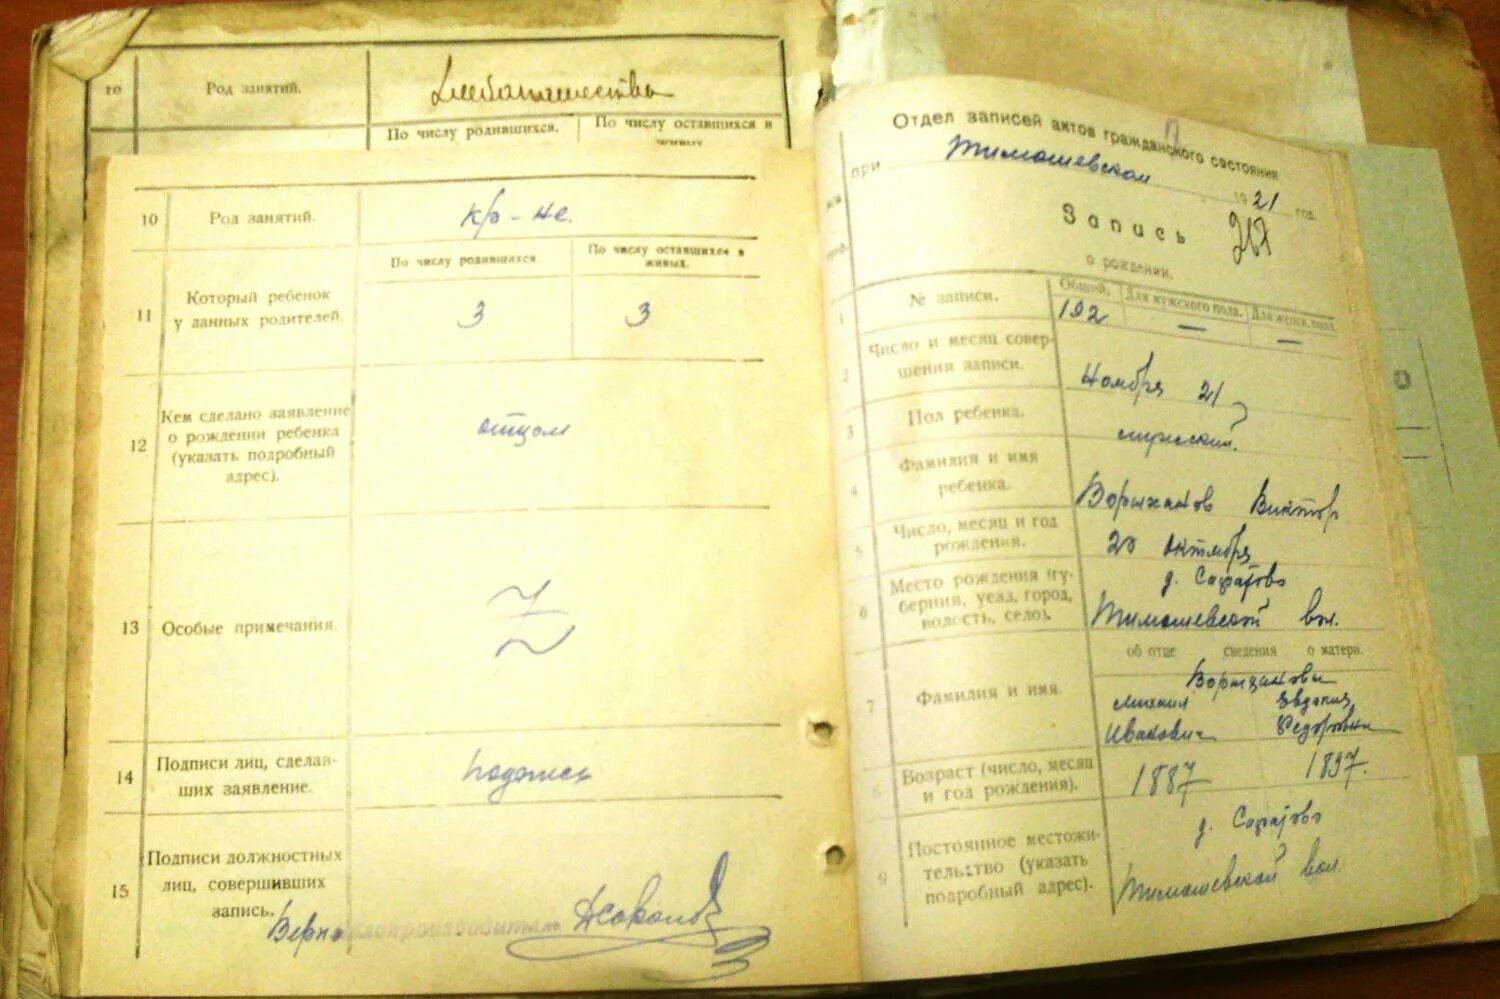 10 Род занятий. Хлебопашество
По числу родившихся. По числу оставшихся в
живых.
10 Род занятий. кр-не.
По числу родившихся По числу оставшихся в
живых.
11 Который ребенок
у данных родителей. 3 3
12 Кем сделано заявление
о рождении ребенка
(указать подробный
адрес). отцом
13 Особые примечания.
14 Подписи лиц, сделав-
ших заявление. подписи
15 Подписи должностных
лиц, совершивших
запись.
Верно делопроизводитель
Отдел записей актов гражданского состояния
при Тимошевском 1921 год.
Запись
о рождении.
1 № записи. Общий. Для мужского пола. Для женск. пола.
192 — —
2 Число и месяц совер-
шения записи. Ноября 21
3 Пол ребенка. мужской.
4 Фамилия и имя
ребенка. Виктор
5 Число, месяц и год
рождения. октября
6 Место рождения (гу-
берния, уезд, город,
волость, село). д. Сафатово
Тимошевской вол.
об отце сведения о матери.
7 Фамилия и имя.
Михаил Евдокия
Иванович Федоровна
8 Возраст (число, месяц
и год рождения). 1887 1897.
9 Постоянное местожи-
тельство (указать
подробный адрес). д. Сафатово
Тимошевской вол.